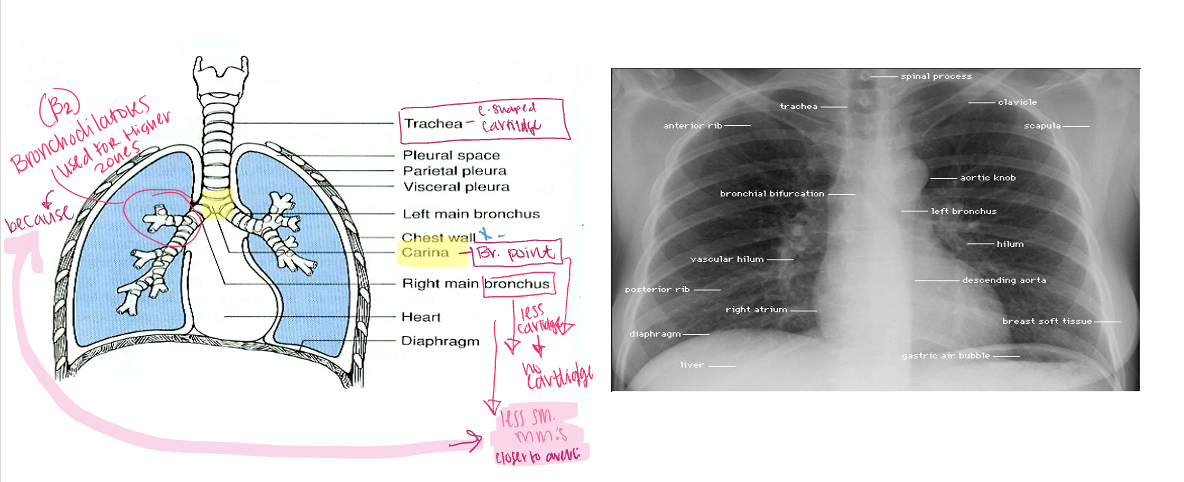 (B₂)
Bronchodilators
used for Higher
zones
because
Trachea - c-shaped
cartilage
Pleural space
Parietal pleura
Visceral pleura
Left main bronchus
Chest wall x -
Carina → Br. point
Right main bronchus
Heart
Diaphragm
less
cartilidge
no
cartlidge
less sm.
mm.'s
closer to
spinal process
trachea
clavicle
anterior rib
scapula
aortic knob
bronchial bifurcation
left bronchus
hilum
vascular hilum
descending aorta
posterior rib
right atrium
breast soft tissue
diaphragm
gastric air bubble
liver